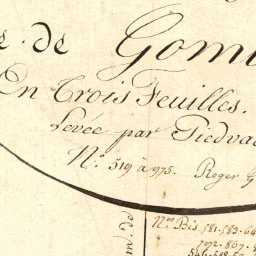 de Gom
En Trois Feuilles.
Levée par Tiedva
N.º 519 à 975. Roger G
m. de
N.ºs Bis 581. 583. 64
792. 807.